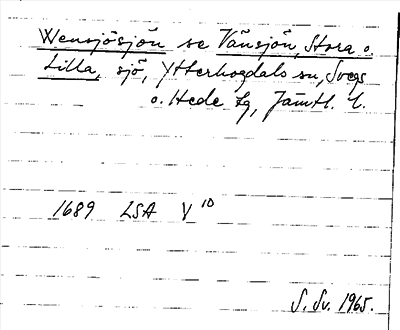 Wensjösjön se Vänsjön, Stora o.
Lilla, sjö, Ytterhogdals sn, Svegs
o. Hede tg, Jämtl. l.
1689 LSA V 10
S. Sv. 1965.